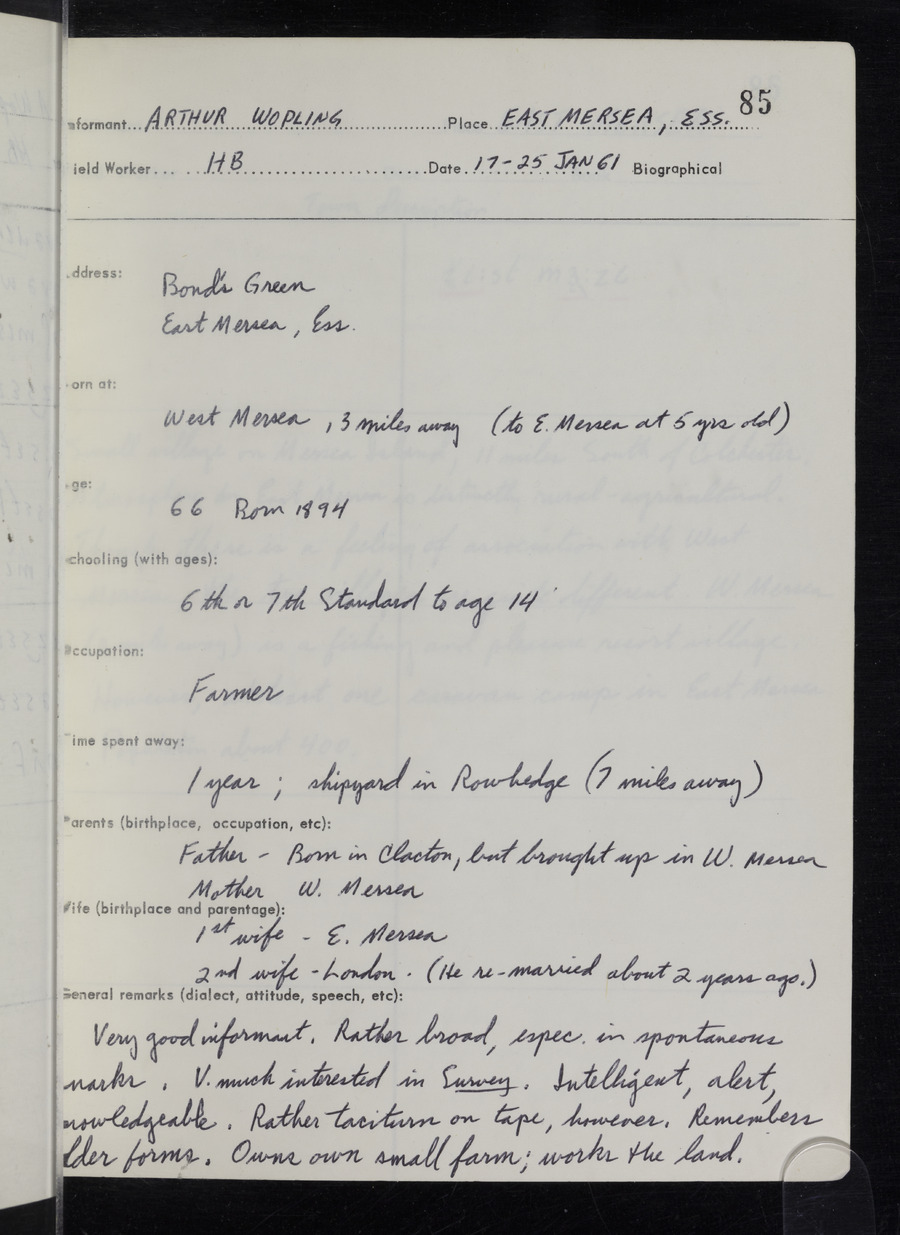 85
nformant...ARTHUR WOPLING...Place EAST MERSEA, ESS.
ield Worker... HB...Date. 17-25 JAN 61 Biographical
ddress:
Bond's Green
East Mersea, Ess.
orn at:
West Mersea, 3 miles away (to E. Mersea at 5 yrs old)
ge:
66 Born 1894
chooling (with ages):
6th or 7th Standard to age 14
ccupation:
Farmer
ime spent away:
1 year; shipyard in Rowhedge (7 miles away)
arents (birthplace, occupation, etc):
Father - Born in Clacton, but brought up in W. Mersea
Mother W. Mersea
ife (birthplace and parentage):
1st wife - E. Mersea
2nd wife - London. (He re-married about 2 years ago.)
General remarks (dialect, attitude, speech, etc):
Very good informant. Rather broad, espec. in spontaneous
marks. V. much interested in Survey. Intelligent, alert,
nowledgeable. Rather taciturn on tape, however. Remembers
lder forms. Owns own small farm; works the land.